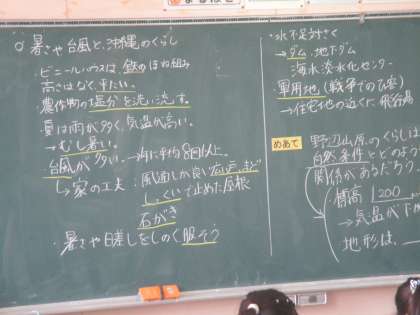 ○ 暑さや台風と、沖縄のくらし
・ビニールハウスは、鉄のほね組み
高さはなく、平たい。
・農作物の塩分を洗い流す。
・夏は雨が多く、気温が高い。
→むし暑い。
台風が多い。→1年に平均8回以上。
→家の工夫
・風通しが良い広い戸、まど
しっくいで止めた屋根
石がき
・暑さや日差しをしのぐ服そう
・水不足対さく
→ダム、地下ダム
海水淡水化センター
・軍用地(戦争でのひ害)
→住宅地の近くに飛行場
めあて
野辺山原のくらしは
自然条件とどのよう
関係があるだろう
・標高 1200
→気温が下
地形は、